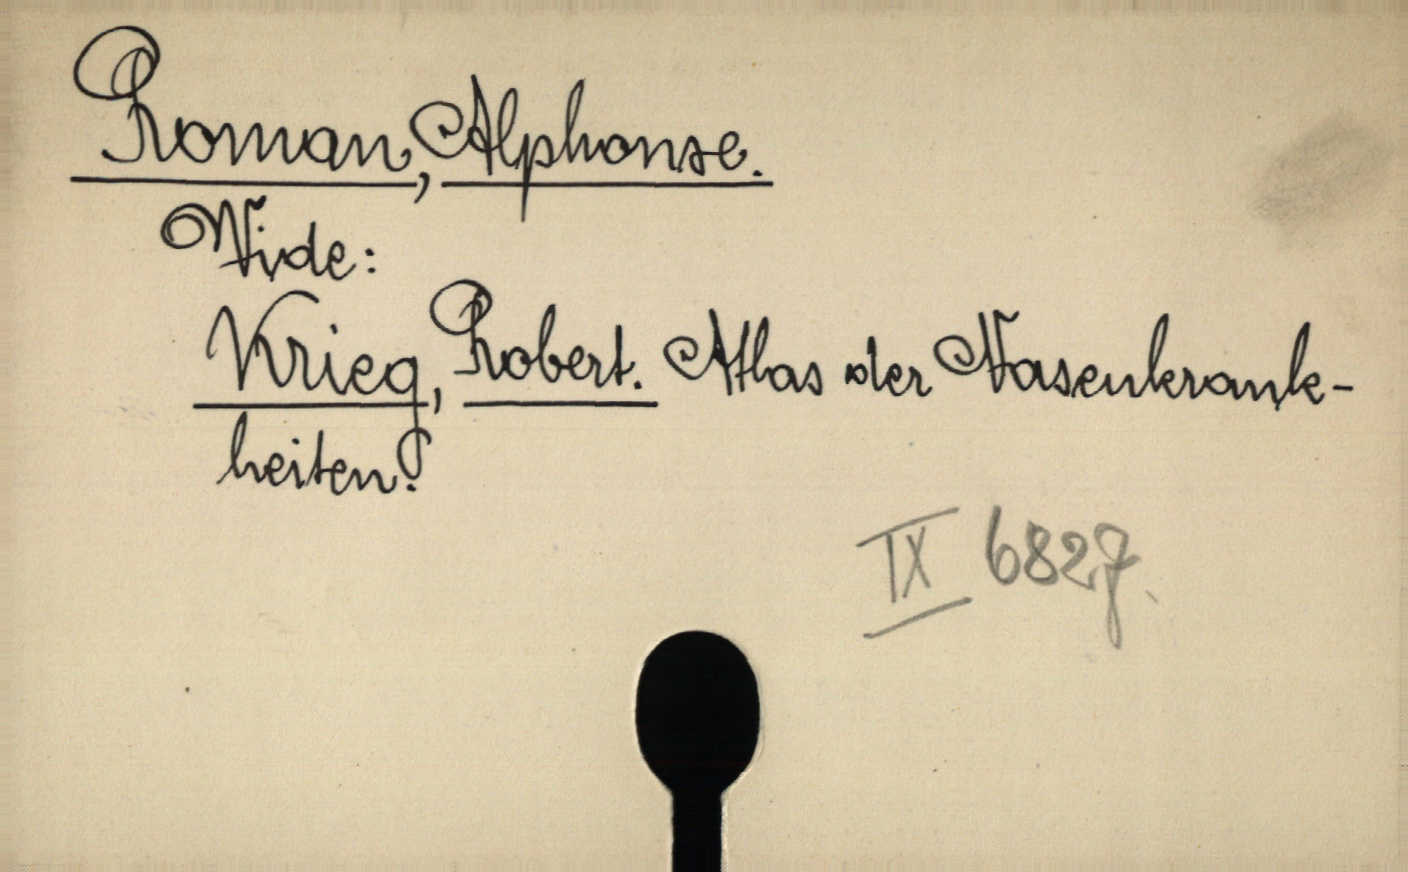 Roman, Alphonse.
Vide:
Krieg, Robert. Atlas der Nasenkrank-
heiten.
IX 6827.